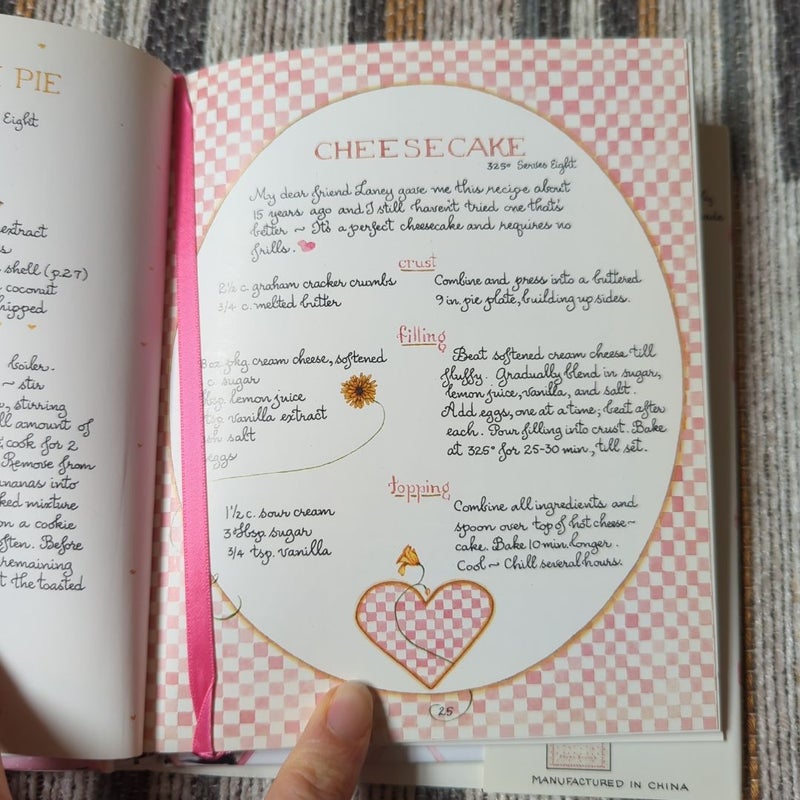 PIE
Eight
extract
shell (p.27)
coconut
boiler.
~ stir
stirring
amount of
cook for 2
Remove from
into
mixture
on a cookie
Before
remaining
the toasted
CHEESECAKE
325° Serves Eight
My dear friend Laney gave me this recipe about
15 years ago and I still haven't tried one that's
better ~ It's a perfect cheesecake and requires no
frills.
crust
2½ c. graham cracker crumbs
3/4 c. melted butter
Combine and press into a buttered
9 in. pie plate, building up sides.
filling
oz. pkg cream cheese, softened
c. sugar
lemon juice
vanilla extract
salt
eggs
Beat softened cream cheese till
fluffy. Gradually blend in sugar,
lemon juice, vanilla, and salt.
Add eggs, one at a time; beat after
each. Pour filling into crust. Bake
at 325° for 25-30 min., till set.
topping
1½ c. sour cream
3 tbsp. sugar
3/4 tsp. vanilla
Combine all ingredients and
spoon over top of hot cheese~
cake. Bake 10 min. longer.
Cool ~ Chill several hours.
25
MANUFACTURED IN CHINA